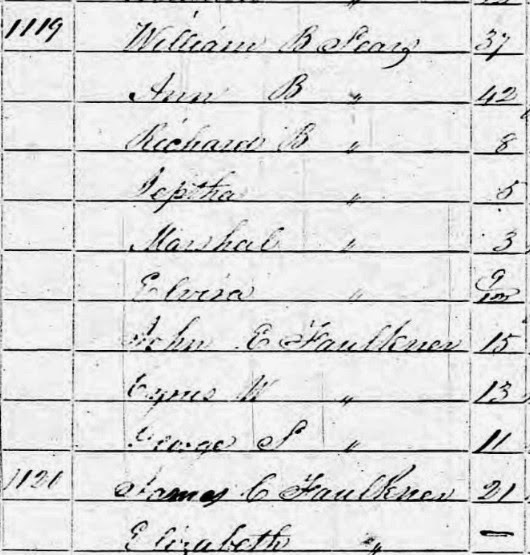 1119 William B Sears 37
Ann B " 42
Richard B " 8
Jeptha " 5
Marshal " 3
Elvira " 9/12
John E Faulkner 15
Cyrus W " 13
George S " 11
1120 James C Faulkner 21
Elizabeth " —